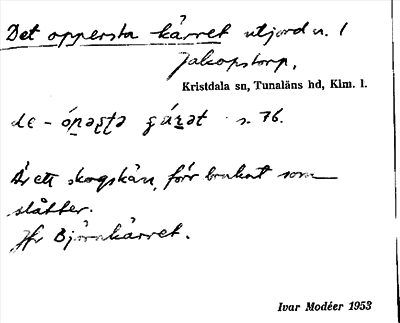 Det oppersta kärret utjord u. 1
Jakopstorp,
Kristdala sn, Tunaläns hd, Klm. l.
s. 76.
Är ett skogskärr, förr brukat som
slåtter.
Jfr Björnkärret.
Ivar Modéer 1953